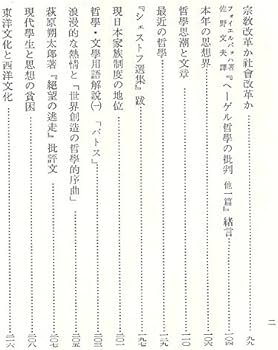 二
宗敎改革か社會改革か……九九
フォイエルバッハ著
佐野文夫譯『ヘーゲル哲學の批判 他一篇』緒言……一〇四
本年の思想界……一〇五
哲學思潮と文章……一〇六
最近の哲學……一一〇
『シェストフ選集』跋……一九七
現日本家族制度の地位……二〇一
哲學・文學用語解說(一)「パトス」……二〇三
浪漫的な熱情と「世界創造の哲學的序曲」……二〇五
萩原朔太郎著『絕望の逃走』批評文……二〇七
現代學生と思想の貧困……二〇八
東洋文化と西洋文化……二一六